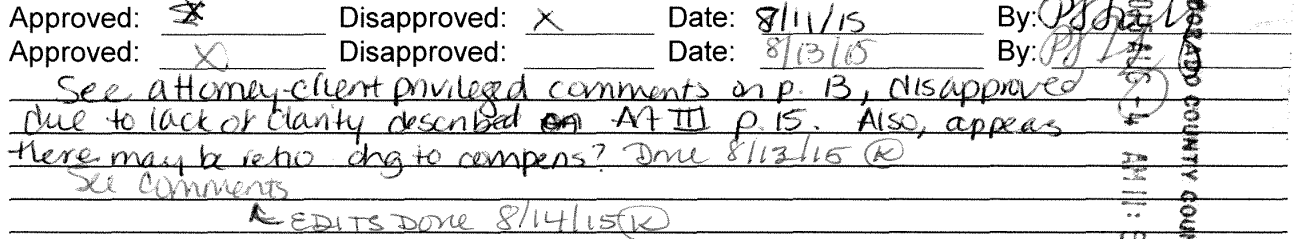 Approved: X Disapproved: X Date: 8/11/15 By:
Approved: X Disapproved: Date: 8/13/15 By:
See attorney-client privileged comments on p. 13, disapproved
due to lack of clarity described on Art III p. 15. Also, appears
there may be retro chg to compens? Done 8/13/15 K
See comments
EDITS Done 8/14/15 K
DORADO COUNTY COUN
AUG -4 AM 11: